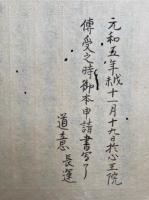 元和五年十一月十九日於心王院
傳受之時御本申請書写了
道 長運